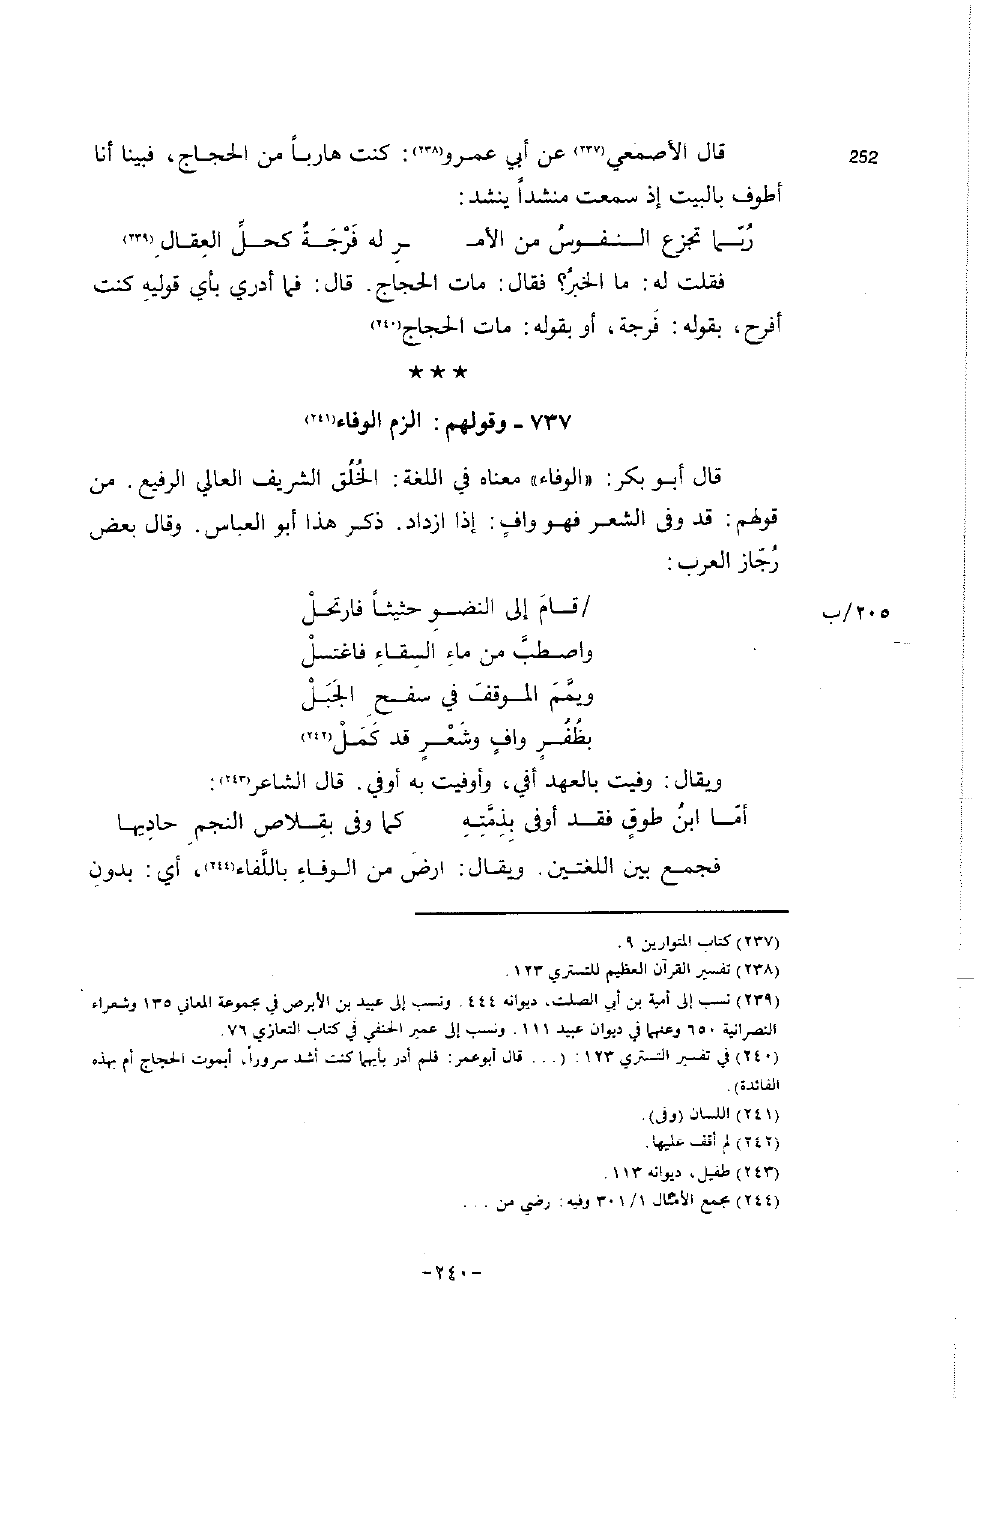 252
قال الأصمعي(٢٣٧) عن أبي عمرو(٢٣٨): كنت هارباً من الحجاج، فبينا أنا
أطوف بالبيت إذ سمعت منشداً ينشد:
رُبَّما تجزع النفوسُ من الأمـ ـر له فَرْجَةٌ كحلِّ العِقال(٢٣٩)
فقلت له: ما الخبرُ؟ فقال: مات الحجاج. قال: فما أدري بأي قوليهِ كنت
أفرح، بقوله: فَرجة، أو بقوله: مات الحجاج(٢٤٠)
★ ★ ★
٧٣٧ ـ وقولهم: الزم الوفاء(٢٤١)
قال أبو بكر: «الوفاء» معناه في اللغة: الخُلُق الشريف العالي الرفيع. من
قولهم: قد وفى الشعر فهو وافٍ: إذا ازداد. ذكر هذا أبو العباس. وقال بعض
رُجّاز العرب:
/قامَ إلى النضوِ حثيثاً فارتحلْ
٢٠٥/ب
واصطبَّ من ماءِ السقاءِ فاغتسلْ
ويمَّمَ الموقفَ في سفحِ الجَبَلْ
بظُفُرٍ وافٍ وشَعْرٍ قد كَمَلْ(٢٤٢)
ويقال: وفيت بالعهد أفي، وأوفيت به أوفي. قال الشاعر(٢٤٣):
أمّا ابنُ طوقٍ فقد أوفى بِذِمَّتِهِ كما وفى بقِلاصِ النجمِ حاديها
فجمع بين اللغتين. ويقال: ارضَ من الوفاءِ باللَّفاء(٢٤٤)، أي: بدونِ
(٢٣٧) كتاب المتوارين ٩.
(٢٣٨) تفسير القرآن العظيم للتستري ١٢٣.
(٢٣٩) نسب إلى أمية بن أبي الصلت، ديوانه ٤٤٤. ونسب إلى عبيد بن الأبرص في مجموعة المعاني ١٣٥ وشعراء
النصرانية ٦٥٠ وعنها في ديوان عبيد ١١١. ونسب إلى عمير الحنفي في كتاب التعازي ٧٦.
(٢٤٠) في تفسير التستري ١٢٣: (... قال أبوعمر: فلم أدر بأيها كنت أشد سروراً، أبموت الحجاج أم بهذه
الفائدة).
(٢٤١) اللسان (وفى).
(٢٤٢) لم أقف عليها.
(٢٤٣) طفيل، ديوانه ١١٣.
(٢٤٤) مجمع الأمثال ٣٠١/١ وفيه: رضي من ...
-٢٤٠-